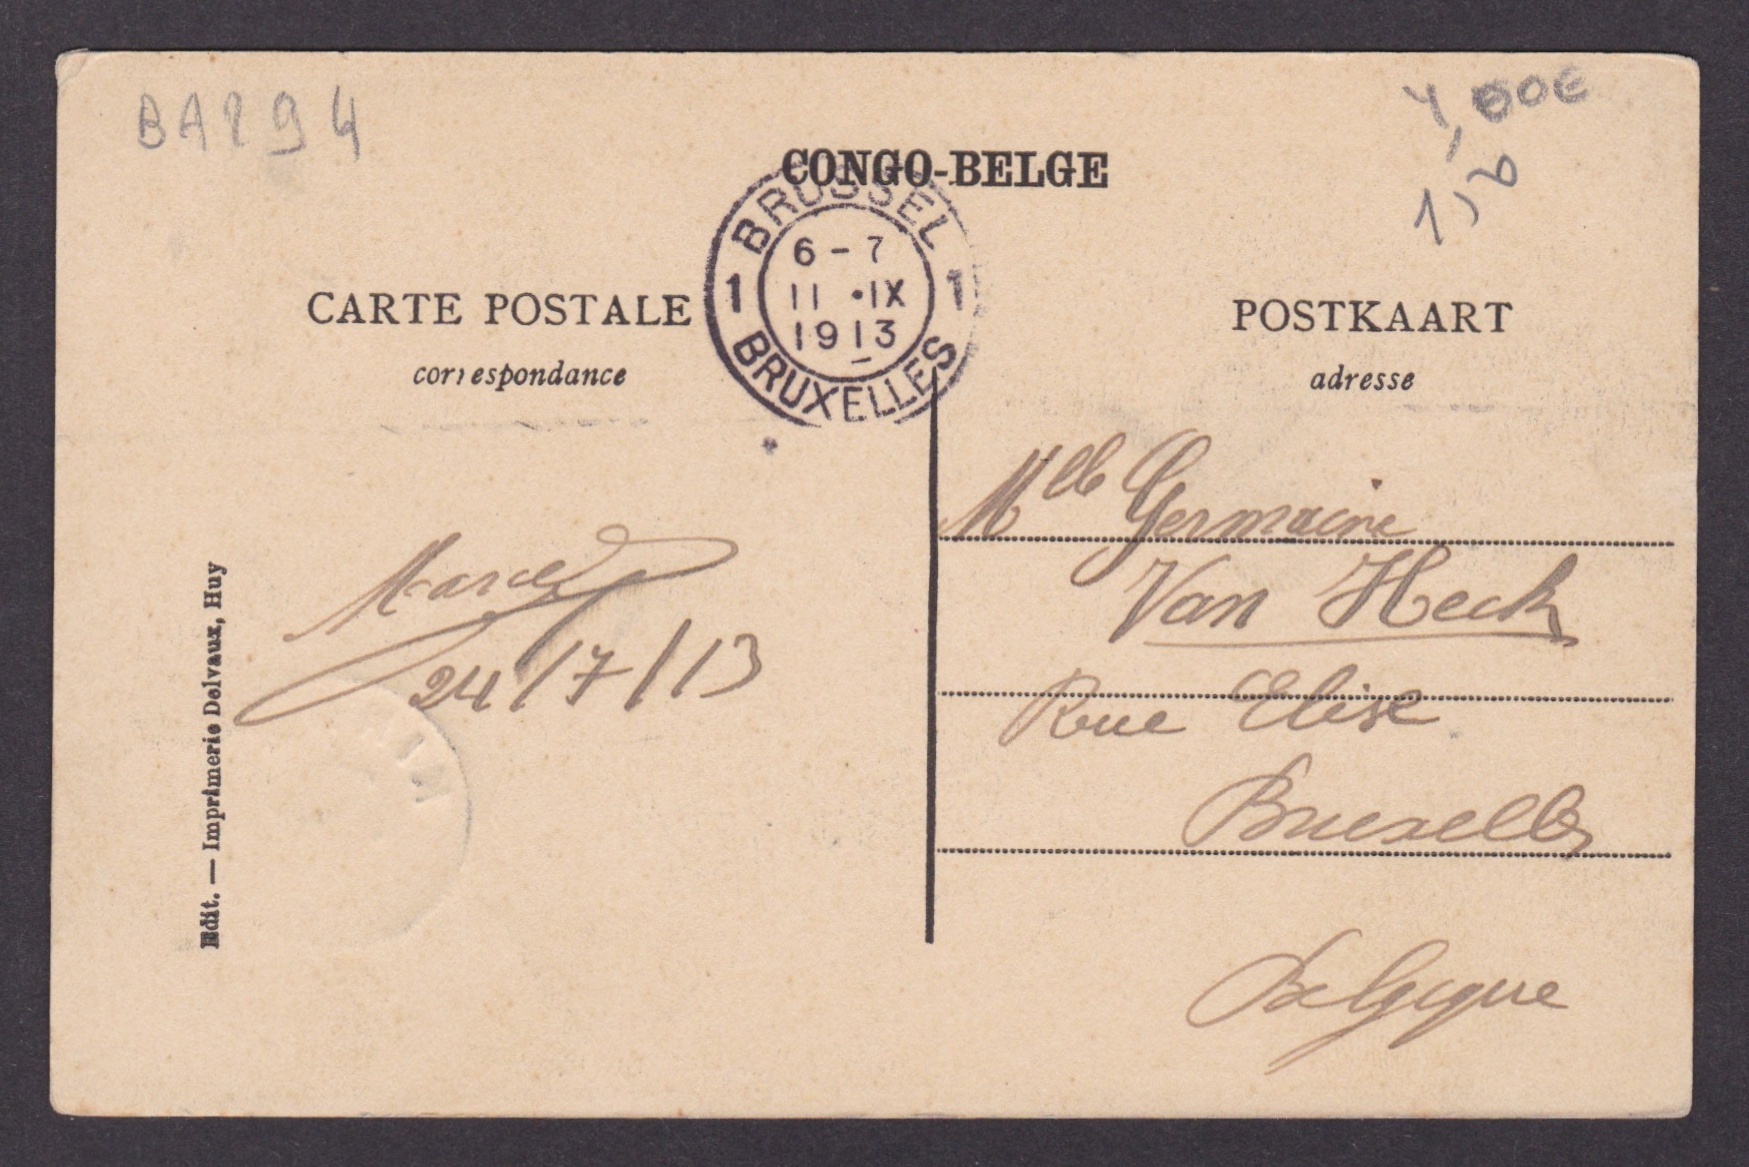 BA294
CONGO-BELGE
BRUSSEL
1 6-7 1
11 •IX
1913
BRUXELLES
CARTE POSTALE
correspondance
POSTKAART
adresse
Marcel
24/7/13
Mlle Germaine
Van Heck
Rue Elise
Bruxelles
Belgique
Edit. — Imprimerie Delvaux, Huy